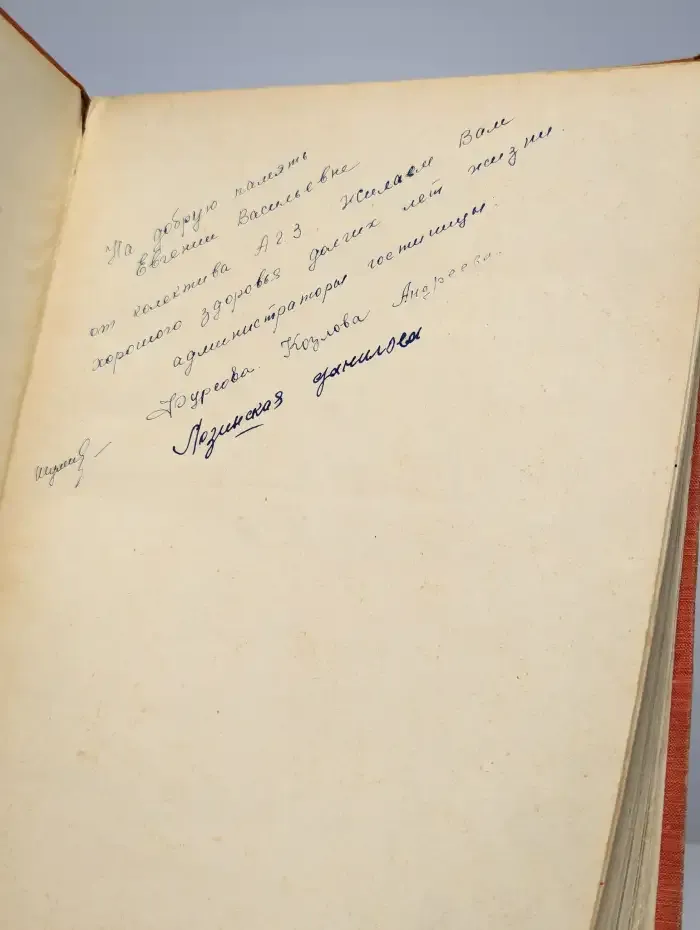 На добрую память
Евгении Васильевне
от колектива АГЗ. Желаем Вам
хорошого здоровья долгих лет жизни.
администраторы гостиницы.
Фурсова. Козлова Андреева.
Лозинская данилова